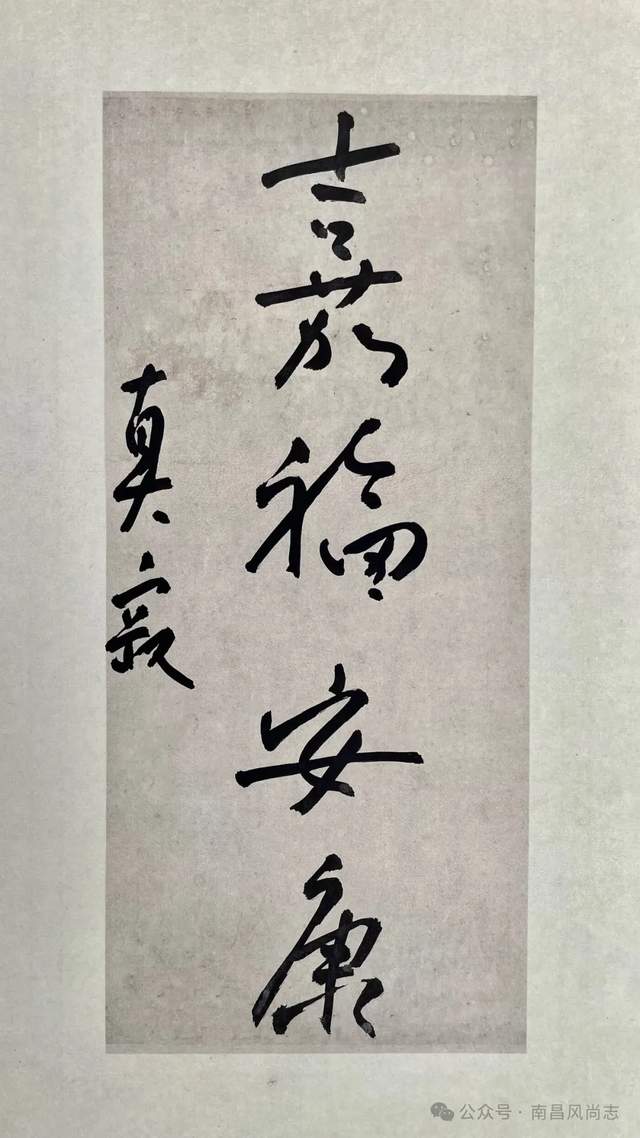 嘉福安康
真寂
公众号·南昌风尚志